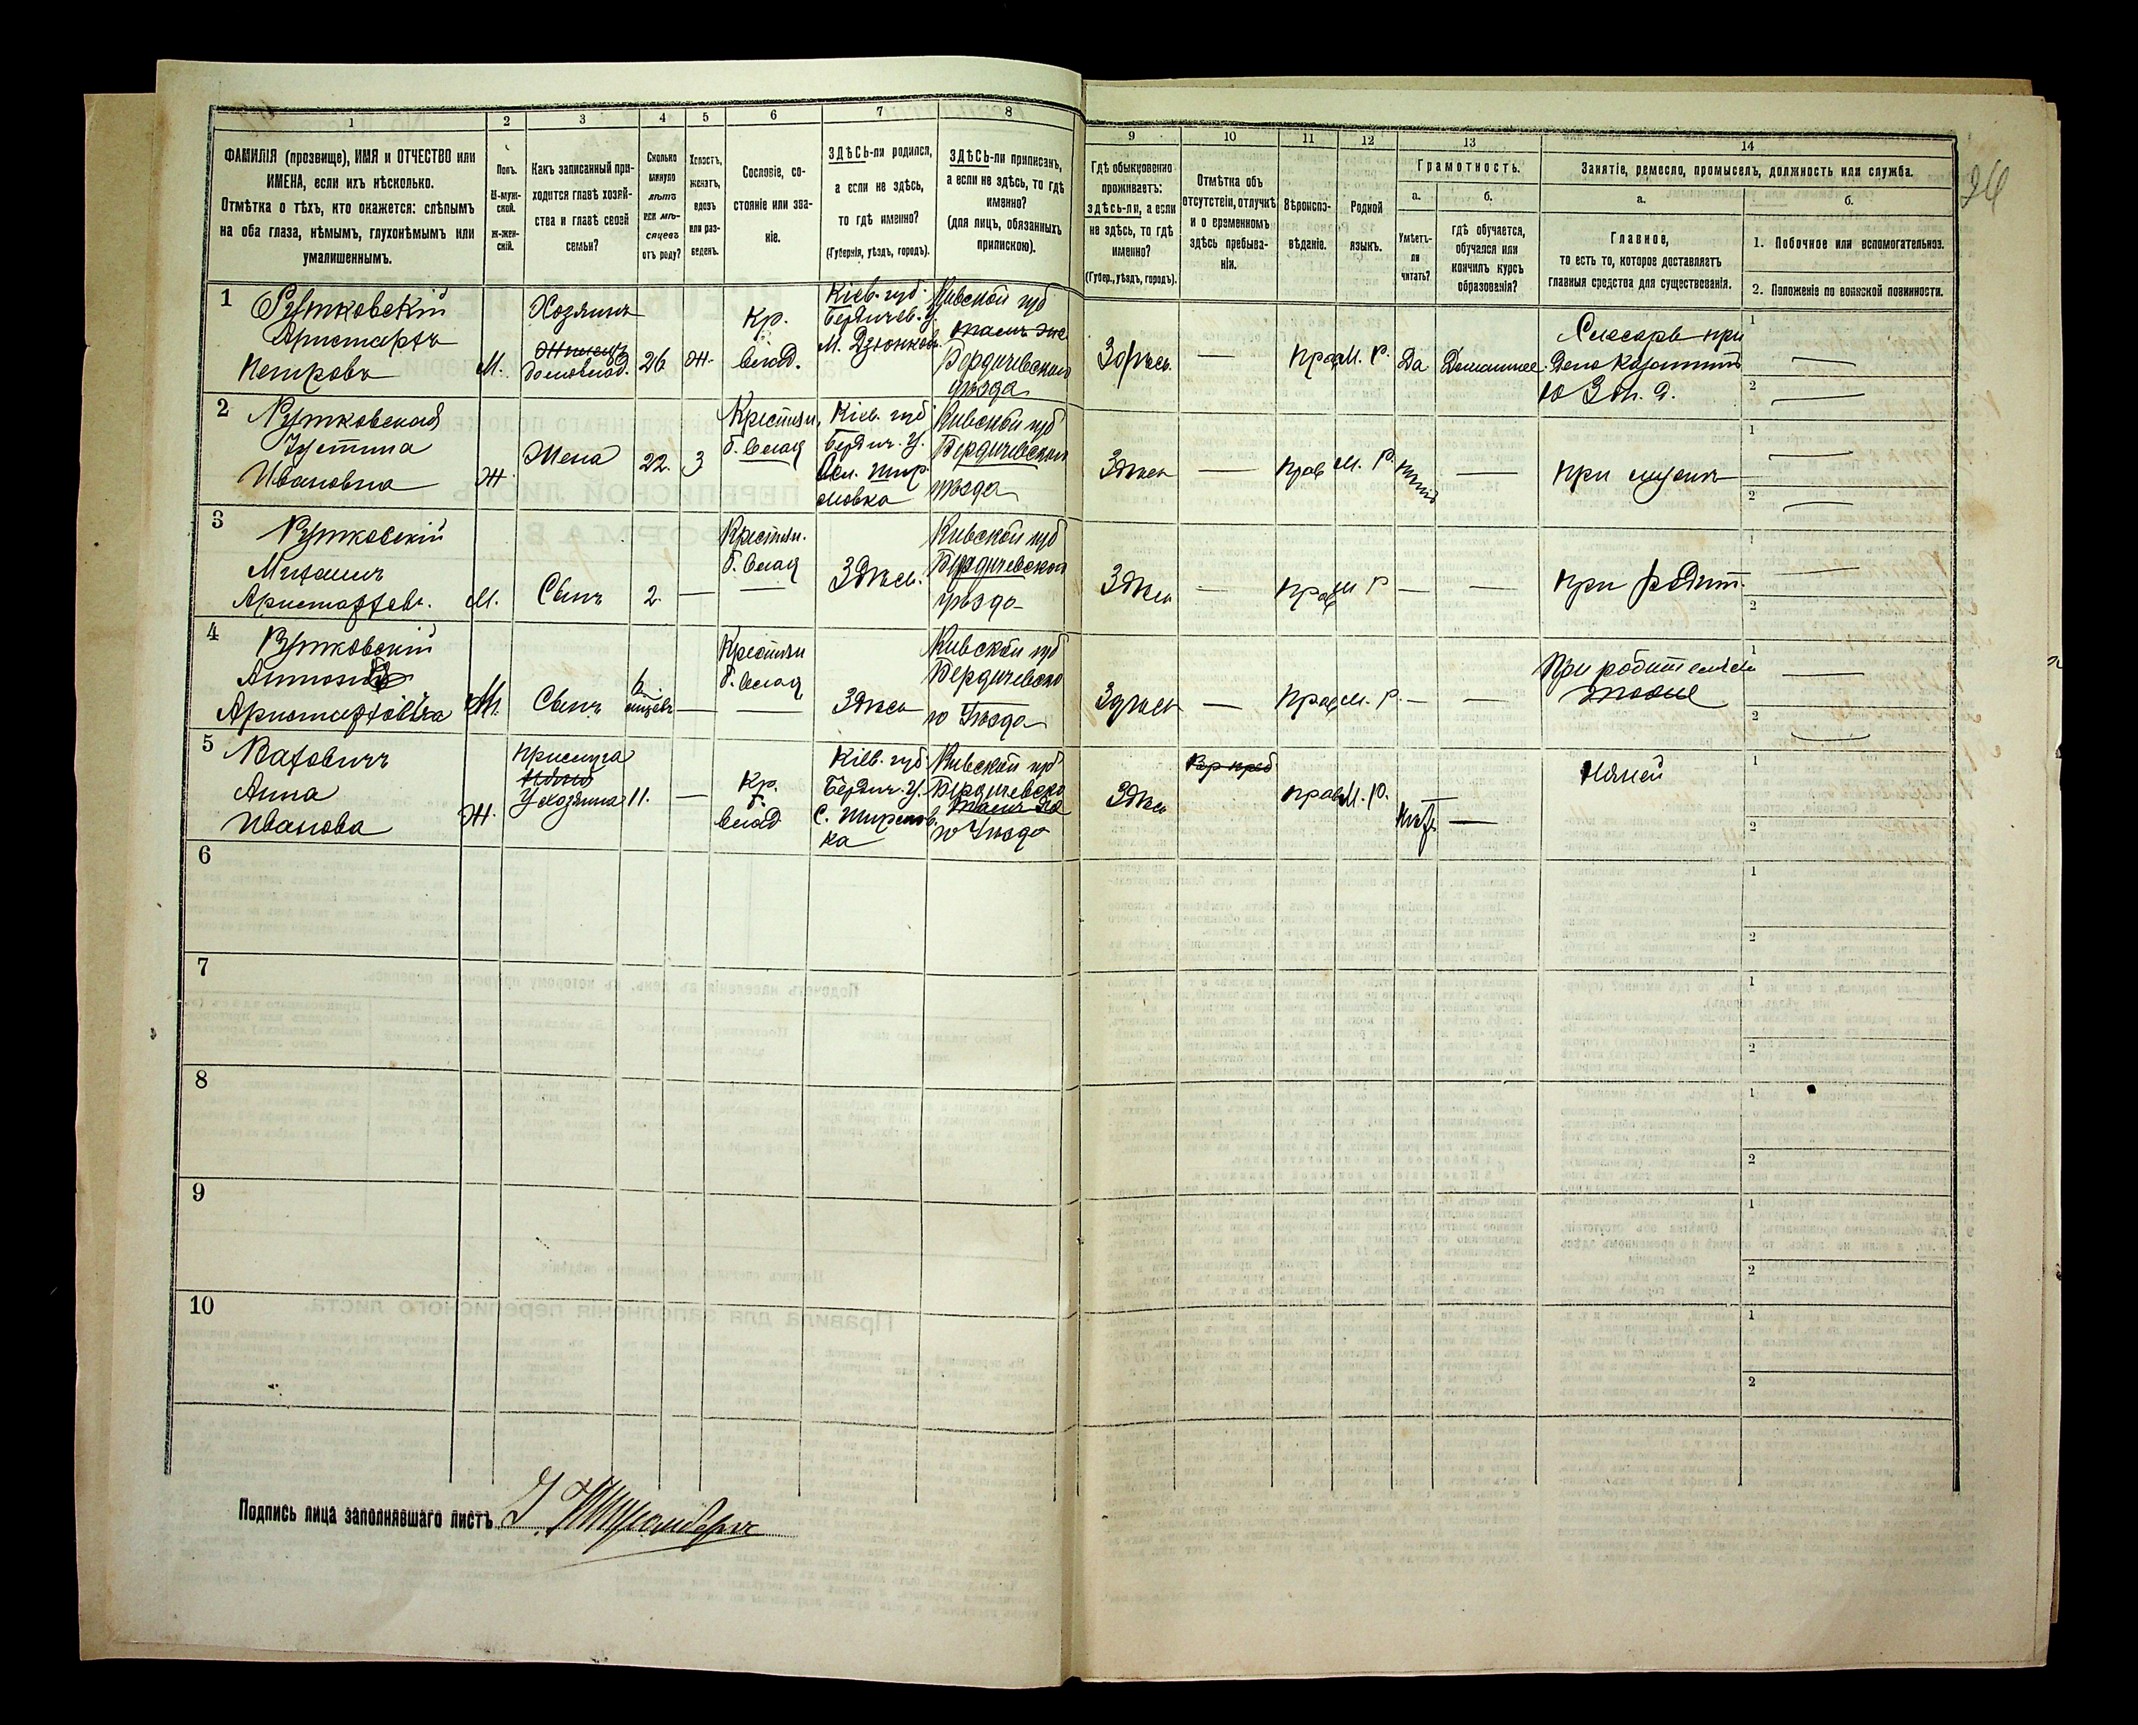 1
2
3
4
5
6
7
8
ФАМИЛІЯ (прозвище), ИМЯ и ОТЧЕСТВО или
ИМЕНА, если ихъ нѣсколько.
Отмѣтка о тѣхъ, кто окажется: слѣпымъ
на оба глаза, нѣмымъ, глухонѣмымъ или
умалишеннымъ.
Полъ.
М-муж-
ской.
Ж-жен-
скій.
Какъ записанный при-
ходится главѣ хозяй-
ства и главѣ своей
семьи?
Сколько
минуло
лѣтъ
или мѣ-
сяцевъ
отъ роду?
Холостъ,
женатъ,
вдовъ
или раз-
веденъ.
Сословіе, со-
стояніе или зва-
ніе.
ЗДѢСЬ-ли родился,
а если не здѣсь,
то гдѣ именно?
(Губернія, уѣздъ, городъ).
ЗДѢСЬ-ли приписанъ,
а если не здѣсь, то гдѣ
именно?
(для лицъ, обязанныхъ
припискою).
9
10
11
12
13
14
Гдѣ обыкновенно
проживаетъ:
здѣсь-ли, а если
не здѣсь, то гдѣ
именно?
(Губер., уѣздъ, городъ).
Отмѣтка объ
отсутствіи, отлучкѣ
и о временномъ
здѣсь пребыва-
ніи.
Вѣроиспо-
вѣданіе.
Родной
языкъ.
Грамотность.
а.
б.
Умѣетъ-
ли
читать?
гдѣ обучается,
обучался или
кончилъ курсъ
образованія?
Занятіе, ремесло, промыселъ, должность или служба.
а.
б.
Главное,
то есть то, которое доставляетъ
главныя средства для существованія.
1. Побочное или вспомогательное.
2. Положеніе по воинской повинности.
26
1
Рутковскій
Аристархъ
Петровъ
М.
Хозяинъ
домовлад.
26
Ж.
Кр.
влад.
Кіев. губ.
Бердичев. у.
М. Дзюнков.
Кіевской губ
Бердичевского
уѣзда
Здѣсь
—
Прав
М. Р.
Да
Домашнее.
Слесарь при
Депо Казатинъ
Ю З ж. д.
1
2
2
Рутковская
Устина
Ивановна
Ж.
Жена
22.
З
Крестьян.
б. влад
Кіев. губ.
Бердич. у.
Кіевской губ
Бердичевского
уѣзда
Здѣсь
—
Прав
М. Р.
—
при мужѣ
1
2
3
Рутковскій
Михаилъ
Аристархов.
М.
Сынъ
2.
—
Крестьян.
б. влад
Здѣсь.
Кіевской губ
Бердичевского
уѣзда
Здѣсь
—
Прав
М Р
—
—
при родит.
1
2
4
Рутковскій
М.
Сынъ
6
мѣсяцъ
—
Крестьян
б. влад
Здѣсь
Кіевской губ
Бердичевско
го уѣзда
Здѣсь
—
Прав
М. Р.
—
—
При родителяхъ
1
2
5
Анна
Иванова
Ж.
Прислуга
У хозяина
11.
—
Кр.
б.
влад
Кіев. губ.
Бердич. у.
Кіевской губ
Бердичевско
го уѣзда
Здѣсь
Прав
М. Р.
—
няней
1
2
6
1
2
7
1
2
8
1
2
9
1
2
10
1
2
Подпись лица заполнявшаго листъ